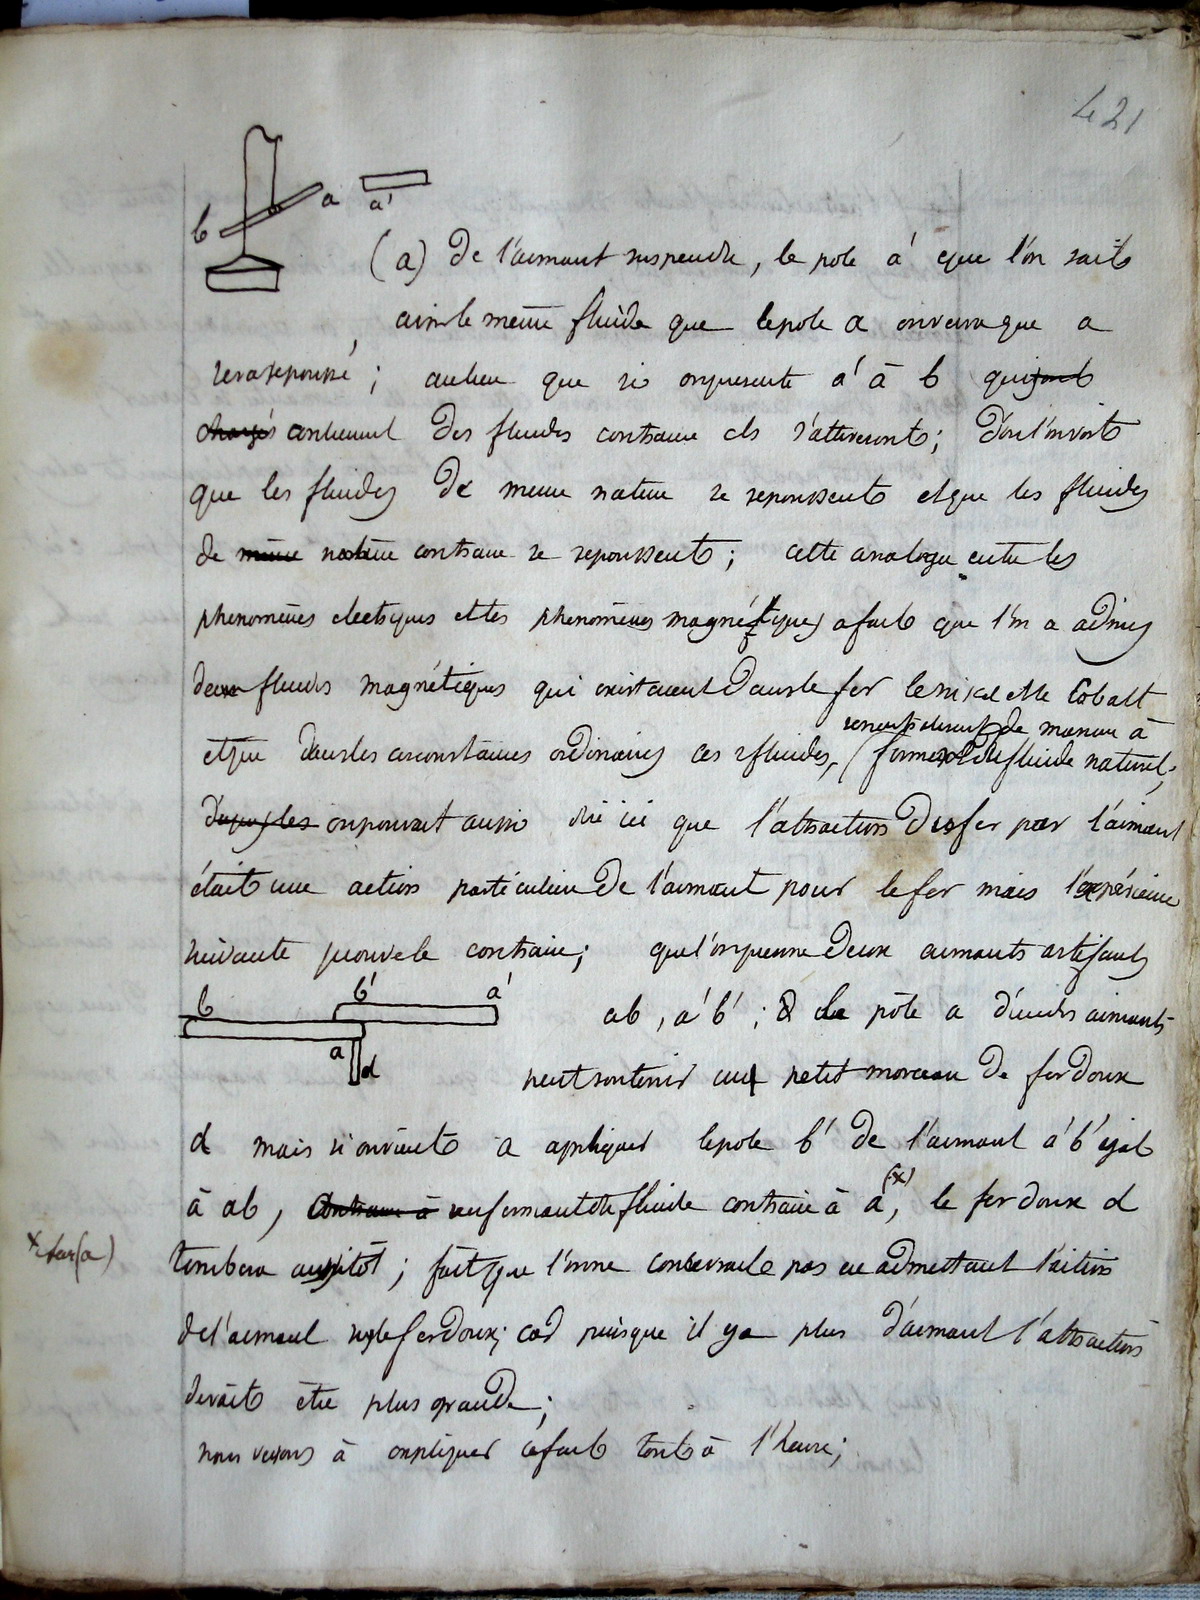 421
b a a'
(a) de l'aimant suspendu, le pole a' que l'on sait
avoir le même fluide que le pole a on verra que a
sera repoussé ; au lieu que si on presente a' à b qui sont
chargés contiennent des fluides contraire ils s'attireront ; d'où l'on voit
que les fluides de meme nature se repoussent et que les fluides
de même nature contraire se repoussent ; cette analogie entre les
phenomènes electriques et les phenomènes magnétiques a fait que l'on a admis
deux fluides magnétiques qui existaient dans le fer le nikel et le Cobalt
se neutralisent de maniere à
et que dans les circonstances ordinaires ces 2 fluides, (former du fluide naturel ;
on pouvait aussi dire ici que l'attraction du fer par l'aimant
était une action particuliere de l'aimant pour le fer mais l'expérience
suivante prouve le contraire ; que l'on prenne deux aimants artificiels
b b' a'
ab, a'b' ; le pôle a d'un des aimants
a d
peut soutenir un petit morceau de fer doux
d mais si on vient a appliquer le pole b' de l'aimant a'b' égal
à ab, contraire à renfermant du fluide contraire à a (x), le fer doux d
x sur (a)
tombera aussitôt ; fait que l'on ne concevrait pas en admettant l'action
de l'aimant sur le fer doux ; car puisque il y a plus d'aimant l'attraction
devait être plus grande ;
nous verrons à expliquer ce fait tout à l'heure ;